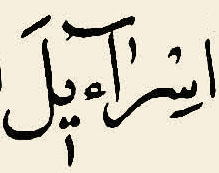 اسْرَآءيلَ